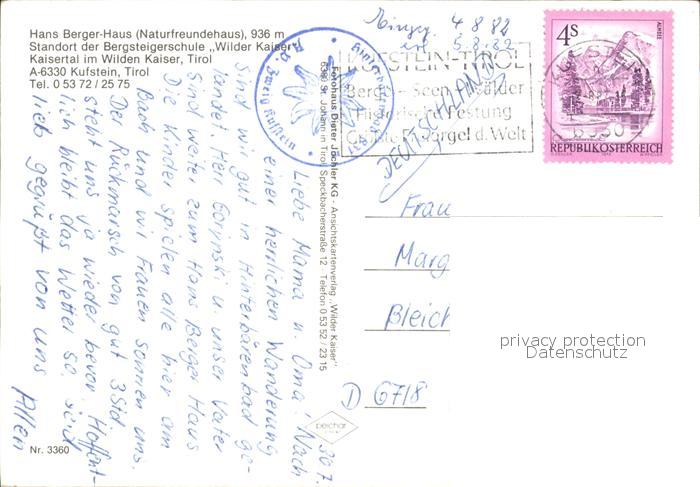 Hans Berger-Haus (Naturfreundehaus), 936 m
Standort der Bergsteigerschule „Wilder Kaiser"
Kaisertal im Wilden Kaiser, Tirol
A-6330 Kufstein, Tirol
Tel. 0 53 72 / 25 75
Eingeg. 4 8 82
erl 5.8.82
KUFSTEIN-TIROL
Berge - Seen - Wälder
Historische Festung
Größte Orgel d. Welt
DEUTSCHLAND
4S
ALMSEE
REPUBLIK ÖSTERREICH
Zweig Kufstein
Fotohaus Dieter Jöchler KG - Ansichtskartenverlag „Wilder Kaiser"
6380 St. Johann in Tirol, Speckbacherstraße 12 - Telefon 0 53 52 / 23 15
30.7.
Liebe Mama u. Oma. Nach
einer herrlichen Wanderung
sind wir gut in Hinterbärenbad ge-
landet. Herr u. unser Vater
sind weiter zum Hans Berger Haus
Die Kinder spielen alle hier am
Bach und wir Frauen sonnen uns.
Der Rückmarsch von gut 3 Std
steht uns ja wieder bevor. Hoffent-
lich bleibt das Wetter so. seid
lieb gegrüßt von uns
Allen
Frau
Marg
Bleich
D 6718
privacy protection
Datenschutz
Nr. 3360